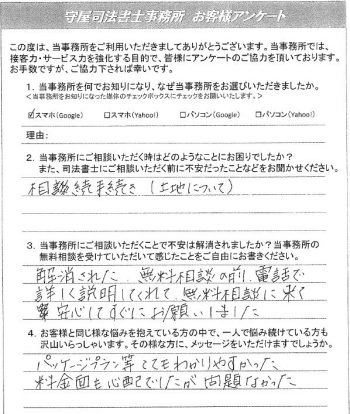 守屋司法書士事務所 お客様アンケート
この度は、当事務所をご利用いただきましてありがとうございます。当事務所では、
接客力・サービス力を強化する目的で、皆様にアンケートのご協力を頂いております。
お手数ですが、ご協力下されば幸いです。
1. 当事務所を何でお知りになり、なぜ当事務所をお選びいただきましたか。
<当事務所をお知りになった媒体のチェックボックスにチェックをお願いいたします。>
☑スマホ(Google) □スマホ(Yahoo!) □パソコン(Google) □パソコン(Yahoo!)
理由:
2. 当事務所にご相談いただく時はどのようなことにお困りでしたか?
また、司法書士にご相談いただく前に不安だったことなどをお聞かせください。
相続手続き (土地について)
3. 当事務所にご相談いただくことで不安は解消されましたか?当事務所の
無料相談を受けていただいて感じたことをご自由にお書きください。
解消された 無料相談の前 電話で
詳しく説明してくれて 無料相談に来て
安心してすぐにお願いしました
4. お客様と同じ様な悩みを抱えている方の中で、一人で悩み続けている方も
沢山いらっしゃいます。その様な方に、メッセージをいただけますでしょうか。
パッケージプラン等とてもわかりやすかった
料金面も心配でしたが問題なかった